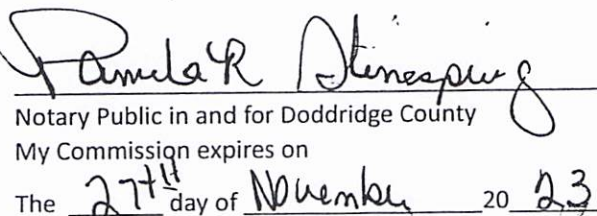 Pamela R Stinespring
Notary Public in and for Doddridge County
My Commission expires on
The 27th day of November 20 23